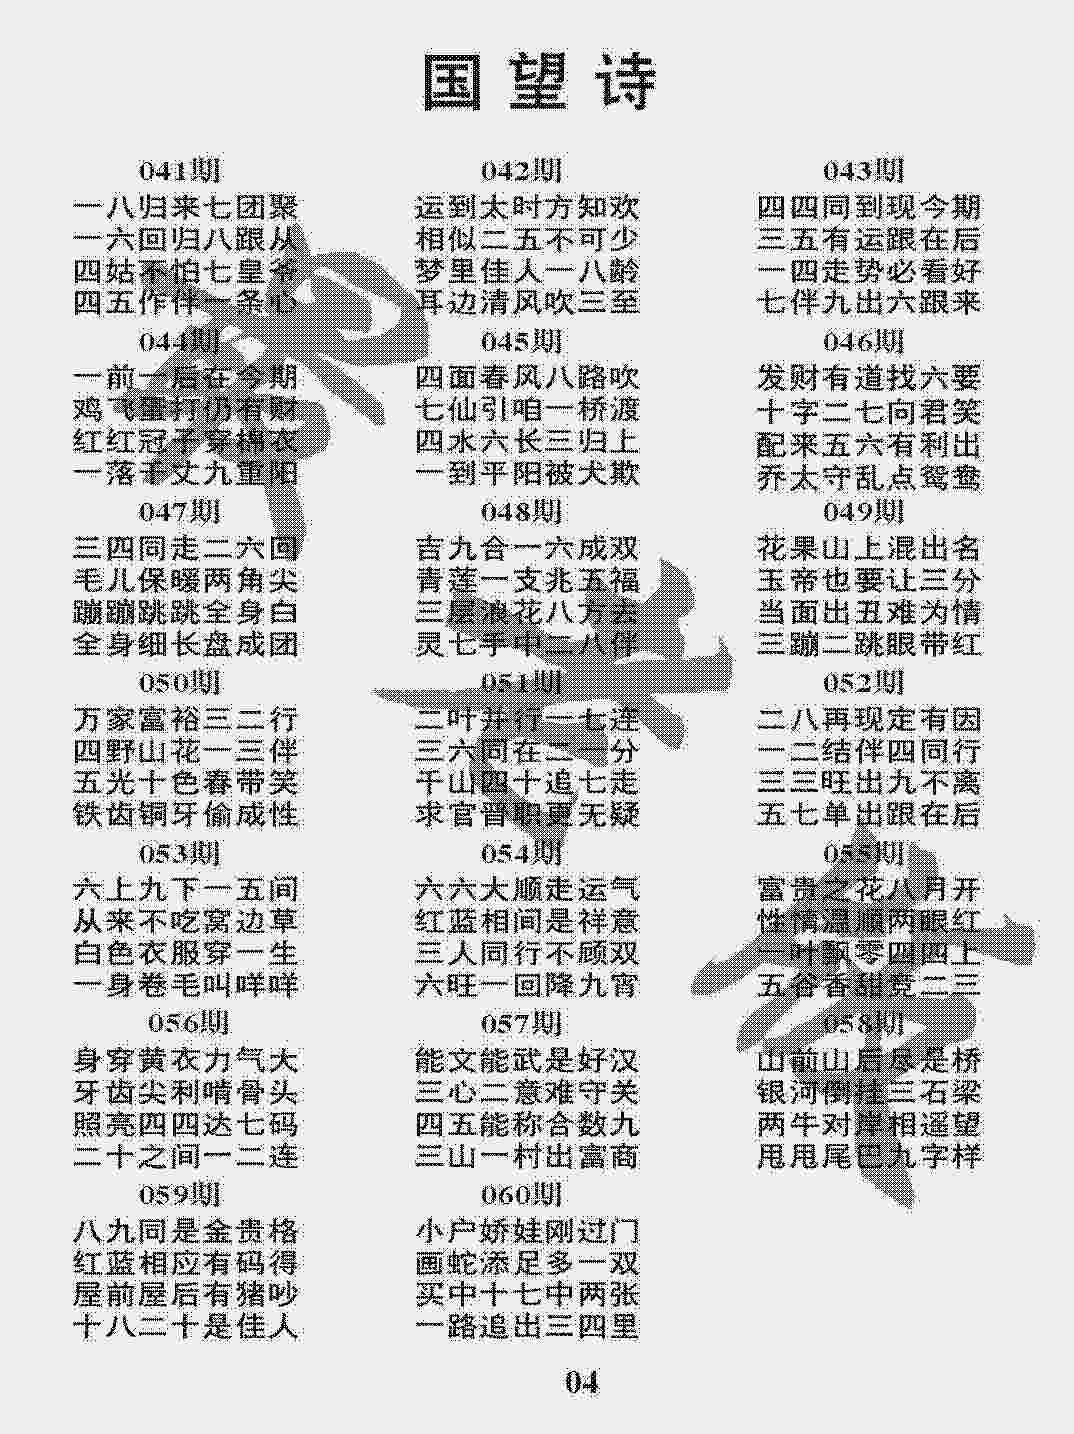 国望诗
041期
一八归来七团聚
一六回归八跟从
四姑不怕七皇爷
四五作伴一条心
042期
运到太时方知欢
相似二五不可少
梦里佳人一八龄
耳边清风吹三至
043期
四四同到现今期
三五有运跟在后
一四走势必看好
七伴九出六跟来
044期
一前一后在今期
鸡飞蛋打仍有财
红红冠子穿棉衣
一落千丈九重阳
045期
四面春风八路吹
七仙引咱一桥渡
四水六长三归上
一到平阳被犬欺
046期
发财有道找六要
十字二七向君笑
配来五六有利出
乔太守乱点鸳鸯
047期
三四同走二六回
毛儿保暖两角尖
蹦蹦跳跳全身白
全身细长盘成团
048期
吉九合一六成双
青莲一支兆五福
三层浪花八方去
灵七手中二八伴
049期
花果山上混出名
玉帝也要让三分
当面出丑难为情
三蹦二跳眼带红
050期
万家富裕三二行
四野山花一三伴
五光十色春带笑
铁齿铜牙偷成性
051期
二叶并行一七连
三六同在二一分
千山四十追七走
求官晋职更无疑
052期
二八再现定有因
一二结伴四同行
三三旺出九不离
五七单出跟在后
053期
六上九下一五间
从来不吃窝边草
白色衣服穿一生
一身卷毛叫咩咩
054期
六六大顺走运气
红蓝相间是祥意
三人同行不顾双
六旺一回降九宵
055期
富贵之花八月开
性情温顺两眼红
一叶飘零四四上
五谷香甜竞二三
056期
身穿黄衣力气大
牙齿尖利啃骨头
照亮四四达七码
二十之间一二连
057期
能文能武是好汉
三心二意难守关
四五能称合数九
三山一村出富商
058期
山前山后尽是桥
银河倒挂三石梁
两牛对岸相遥望
甩甩尾巴九字样
059期
八九同是金贵格
红蓝相应有码得
屋前屋后有猪吵
十八二十是佳人
060期
小户娇娃刚过门
画蛇添足多一双
买中十七中两张
一路追出三四里
04